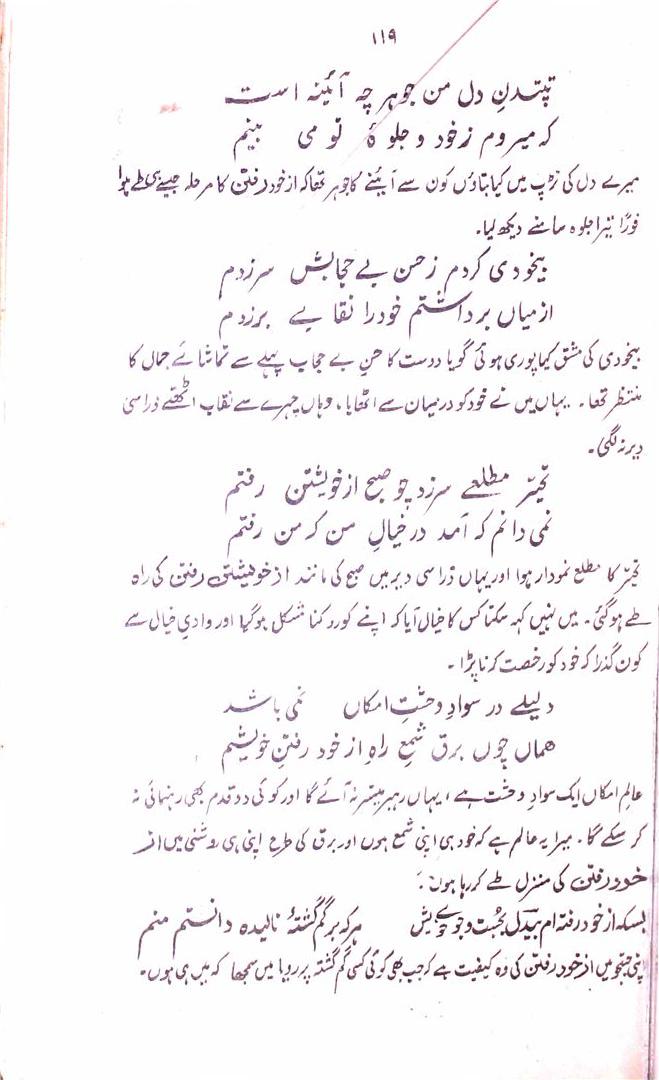 ۱۱۹
تپیدنِ دل من جوہر چہ آئینہ است
کہ میروم ز خود و جلوۂ تو می بینم
میرے دل کی تڑپ میں کیا بتاؤں کون سے آئینے کا جوہر تھا کہ از خود رفتن کا مرحلہ جیسے ہی طے ہوا
فوراً تیرا جلوہ سامنے دیکھ لیا۔
بیخودی کردم زحسن بے حجابش سرزدم
از میاں برداشتم خود را نقابے برزدم
بیخودی کی مشق کیا پوری ہوئی گویا دوست کا حسنِ بے حجاب پہلے سے تماشائے جمال کا
منتظر تھا۔ یہاں میں نے خود کو درمیان سے اٹھایا، وہاں چہرے سے نقاب اٹھتے ذرا سی
دیر نہ لگی۔
تحیّر مطلعے سرزد چو صبح از خویشتن رفتم
نمی دانم کہ آمد در خیالِ من کہ من رفتم
تحیّر کا مطلع نمودار ہوا اور یہاں ذرا سی دیر میں صبح کی مانند از خویشتن رفتن کی راہ
طے ہو گئی۔ میں نہیں کہہ سکتا کس کا خیال آیا کہ اپنے کو روکنا مشکل ہو گیا اور وادیِ خیال سے
کون گذرا کہ خود کو رخصت کرنا پڑا۔
دلیلے در سوادِ وحشتِ امکاں نمی باشد
ہماں چوں برق شمعِ راہِ از خود رفتنِ خویشم
عالمِ امکاں ایک سوادِ وحشت ہے، یہاں رہبر میسر نہ آئے گا اور کوئی دو قدم بھی رہنمائی نہ
کر سکے گا۔ میرا یہ عالم ہے کہ خود ہی اپنی شمع ہوں اور برق کی طرح اپنی ہی روشنی میں از
خود رفتن کی منزل طے کر رہا ہوں۔
بسکہ از خود رفتہ ام بیدل بجست و جوے خویش ہر کہ بر گم گشتۂ نالیدہ دانستم منم
اپنی جستجو میں از خود رفتن کی وہ کیفیت ہے کہ جب بھی کوئی کسی گم گشتہ پر رویا میں سمجھا کہ میں ہی ہوں۔